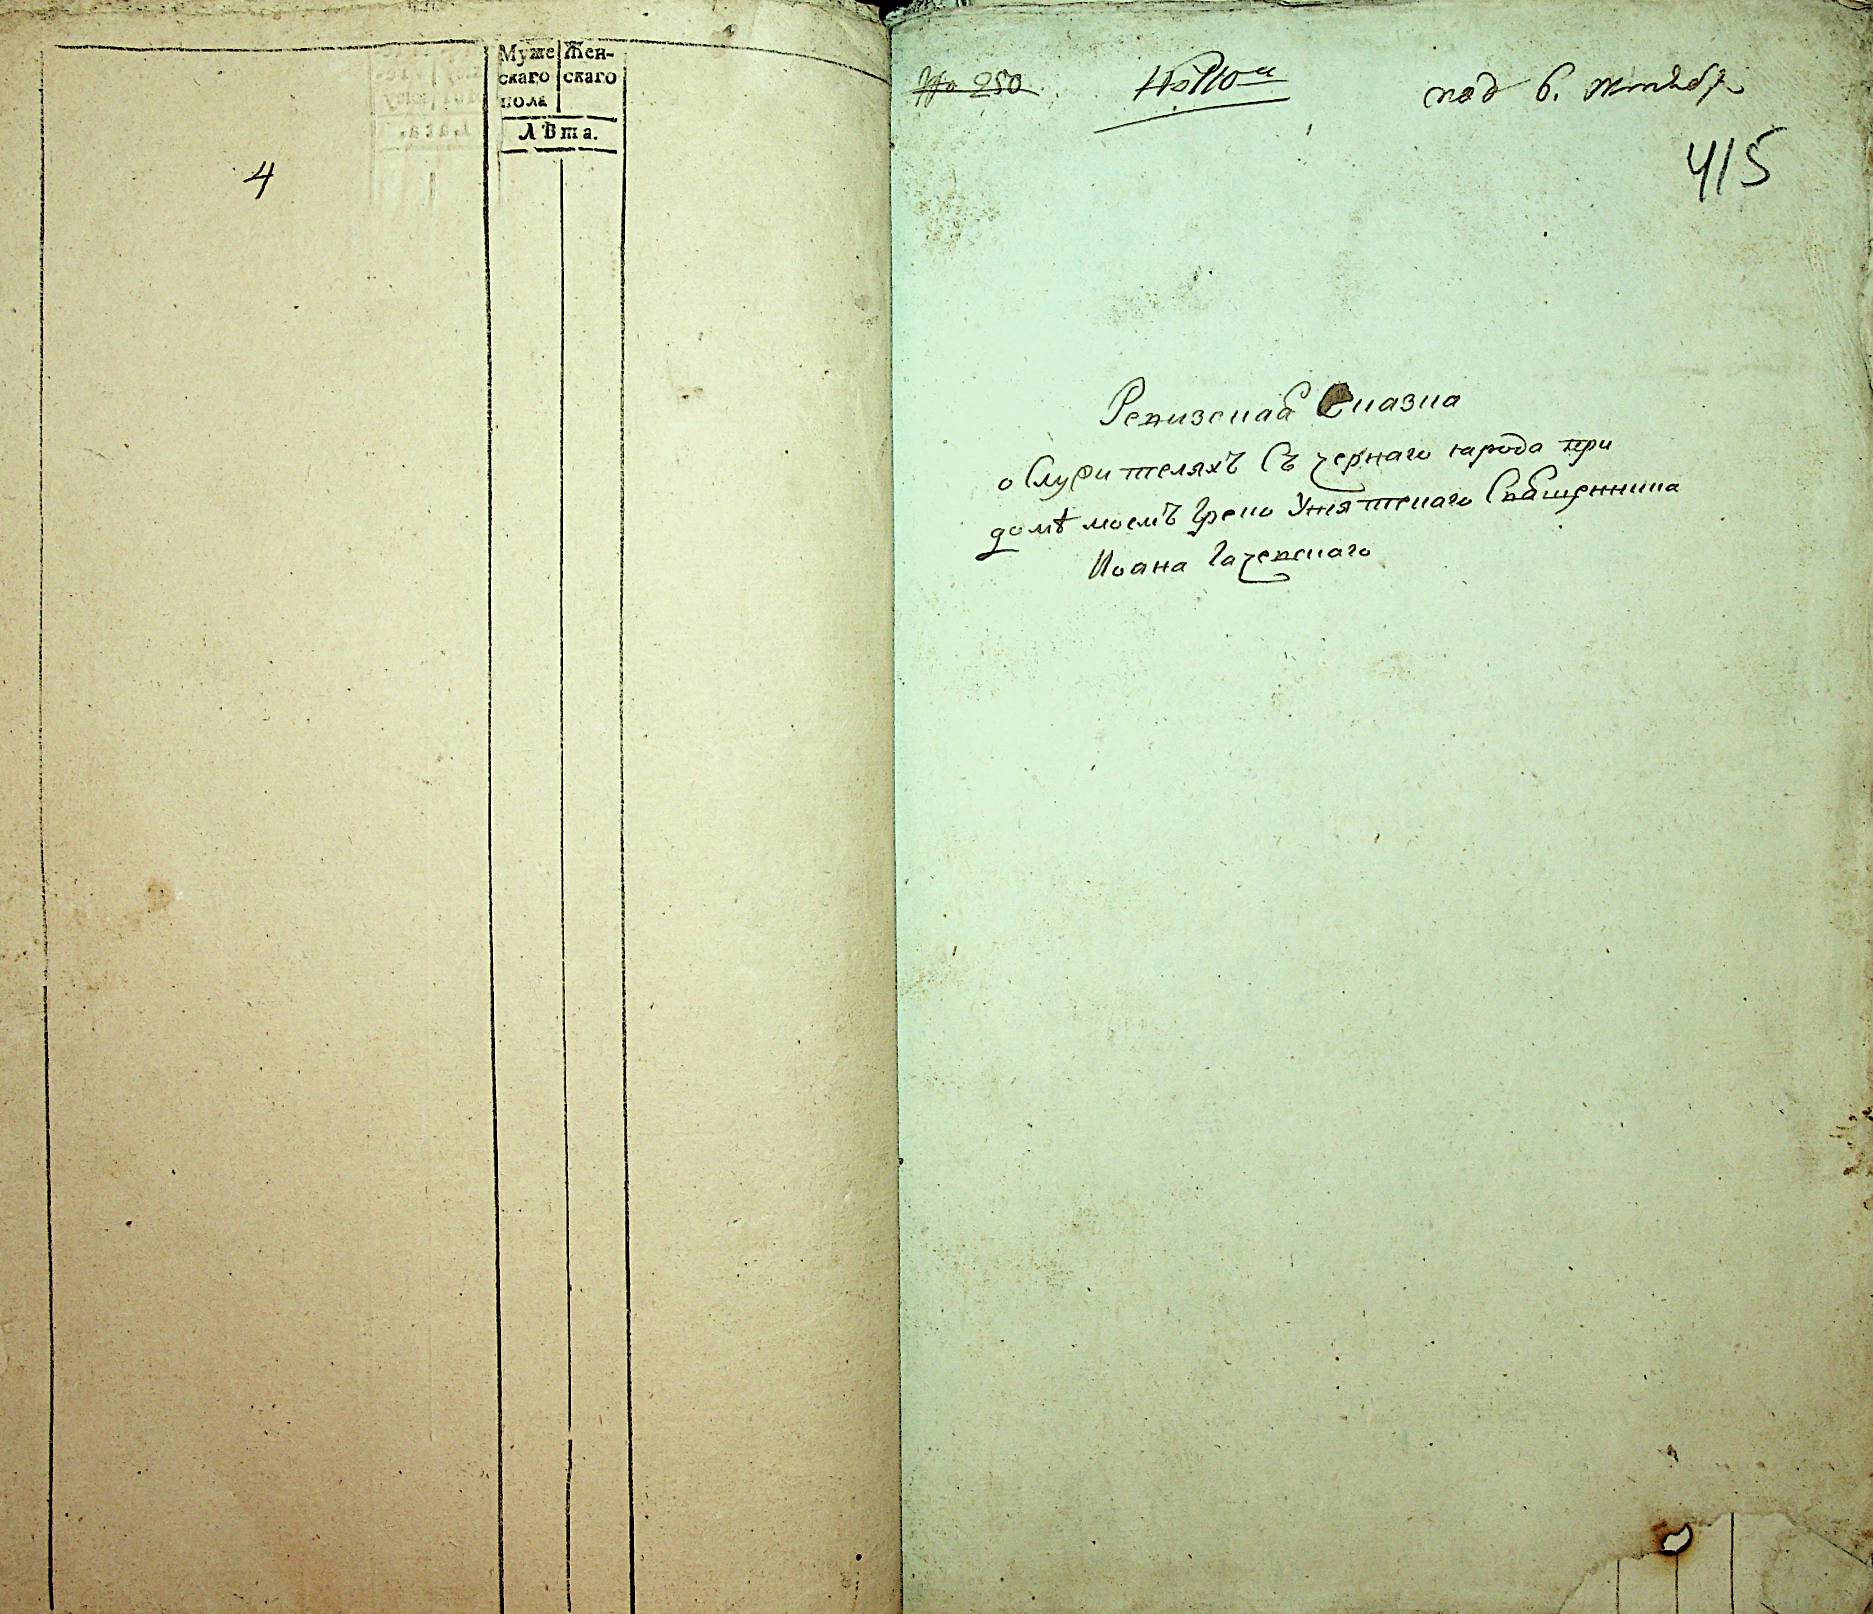 Муже Жен-
скаго скаго
пола
Лѣта.
4
№ 250
под 6. октябр
415
Ревизская Сказка
о Служителяхъ Съ чернаго народа при
домѣ моемъ Греко Унятскаго Священника
Иоана Гачевскаго